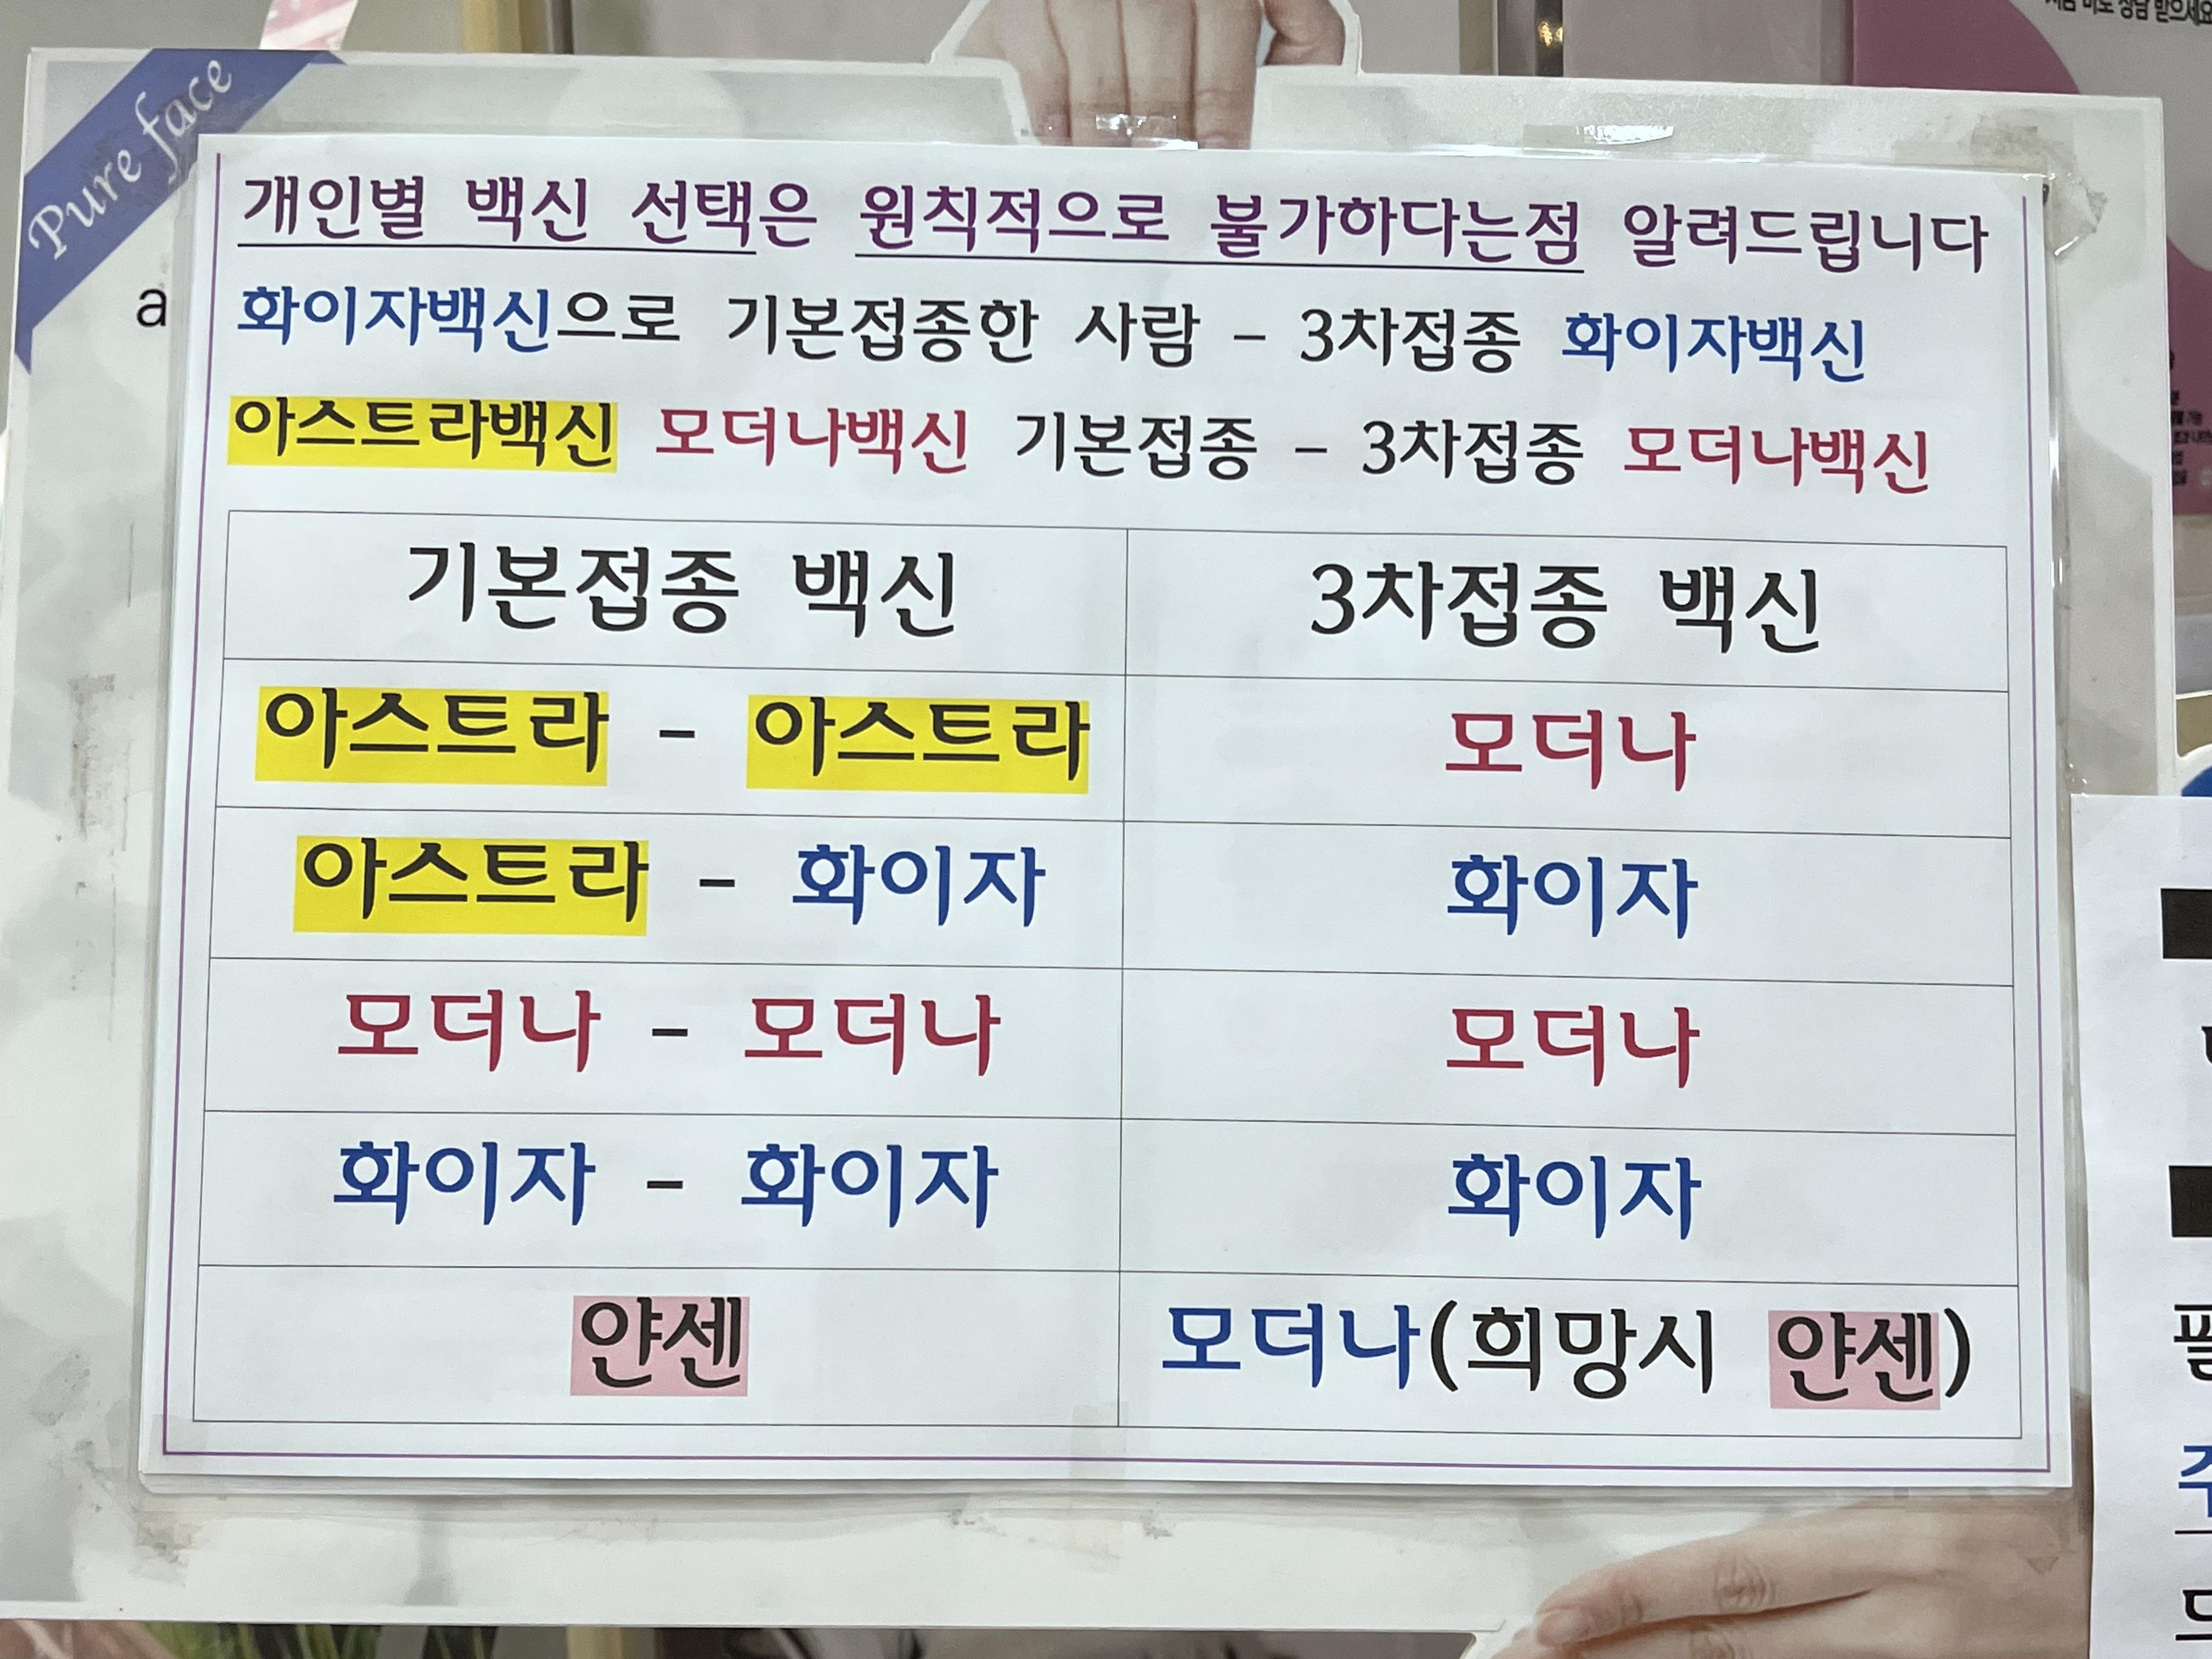 Pure face
a
개인별 백신 선택은 원칙적으로 불가하다는점 알려드립니다
화이자백신으로 기본접종한 사람 - 3차접종 화이자백신
아스트라백신 모더나백신 기본접종 - 3차접종 모더나백신
기본접종 백신 3차접종 백신
아스트라 - 아스트라 모더나
아스트라 - 화이자 화이자
모더나 - 모더나 모더나
화이자 - 화이자 화이자
얀센 모더나(희망시 얀센)